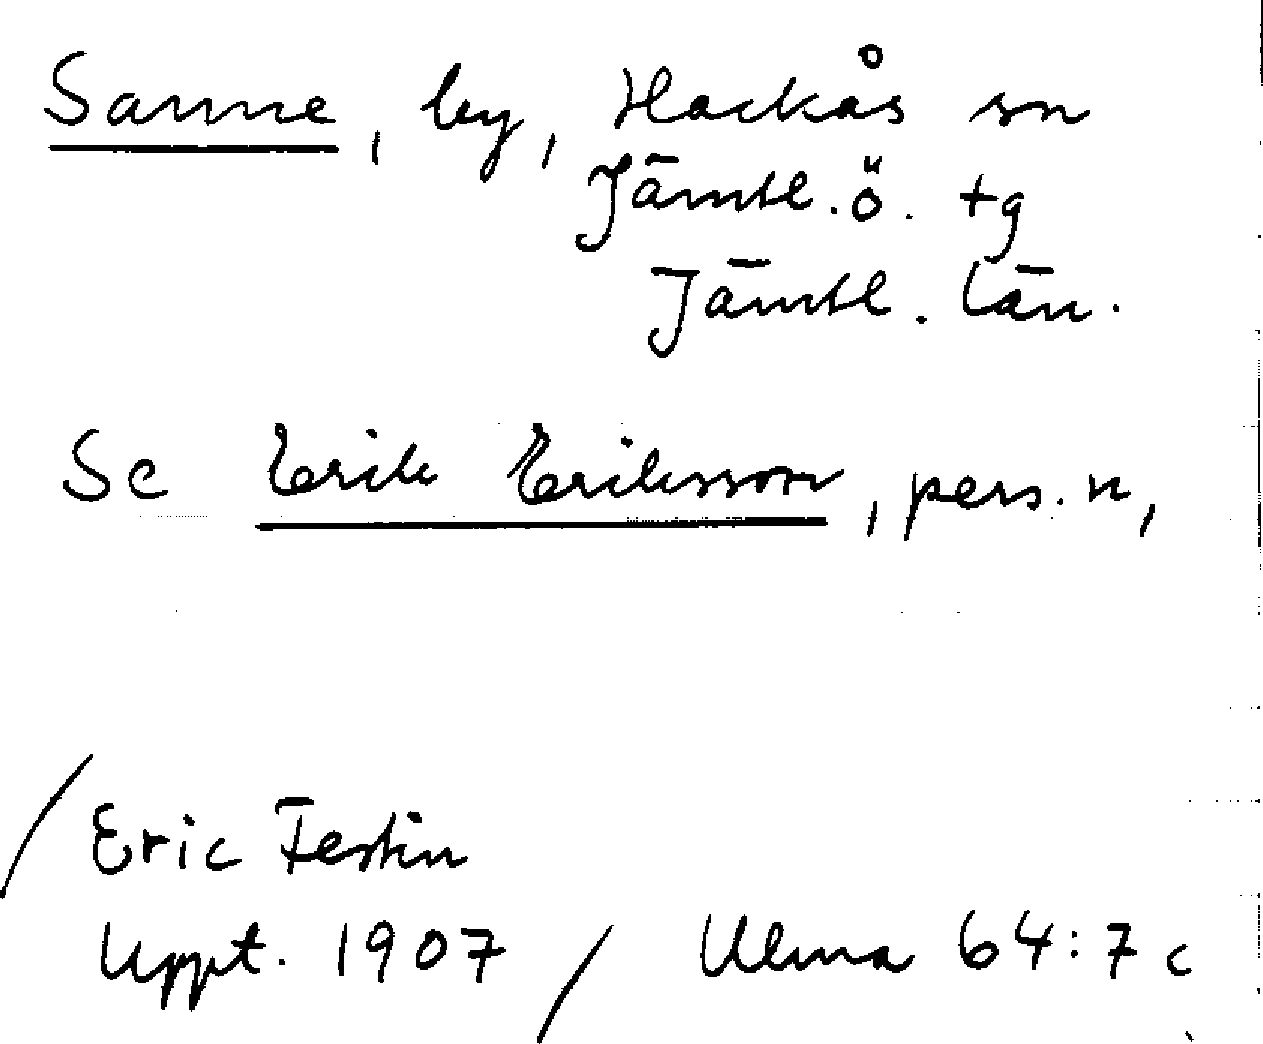 Sanne, by, Hackås sn
Jämtl. ö. tg
Jämtl. län.
Se Erik Eriksson, pers. n,
/Eric Festin
Uppt. 1907 / Ulma 64:7 c